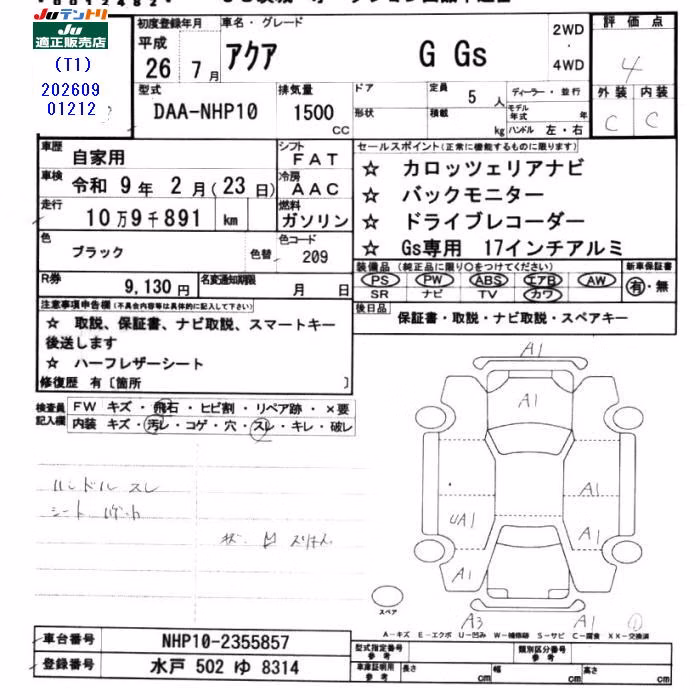 JUテントリ
JU
適正販売店
(T1)
202609
01212
初度登録年月
車名・グレード
評価点
平成
26 7月
アクア
G Gs
2WD
4WD
4
型式
排気量
ドア
定員
5人
ディーラー・並行
外装
内装
DAA-NHP10
1500
CC
形状
積載
kg
モデル年式
年
ハンドル 左・右
C
C
車歴
自家用
シフト
FAT
セールスポイント(正常に機能するものに限ります)
車検
令和 9年 2月(23日)
冷房
AAC
☆ カロッツェリアナビ
☆ バックモニター
走行
10万9千891 km
燃料
ガソリン
☆ ドライブレコーダー
☆ Gs専用 17インチアルミ
色
ブラック
色替
色コード
209
装備品 (純正品に限り○をつけてください)
新車保証書
PS PW ABS エアB AW
SR ナビ TV カワ
有・無
R券
9,130円
名変通知期限
月 日
注意事項申告欄(不具合内容等は具体的に記入して下さい)
後日品
保証書・取説・ナビ取説・スペアキー
☆ 取説、保証書、ナビ取説、スマートキー
後送します
☆ ハーフレザーシート
修復歴 有〔箇所 〕
検査員
記入欄
FW キズ・飛石・ヒビ割・リペア跡・×要
内装 キズ・汚レ・コゲ・穴・スレ・キレ・破レ
ハンドル スレ
シート
A1
A1
A1
UA1
A1
A1
A3
A1
スペア
A-キズ E-エクボ U-凹み W-補修跡 S-サビ C-腐食 XX-交換済
車台番号
NHP10-2355857
登録番号
水戸 502 ゆ 8314
型式指定番号
参考
類別区分番号
参考
車庫証明用
参考
長さ
cm
幅
cm
高さ
cm